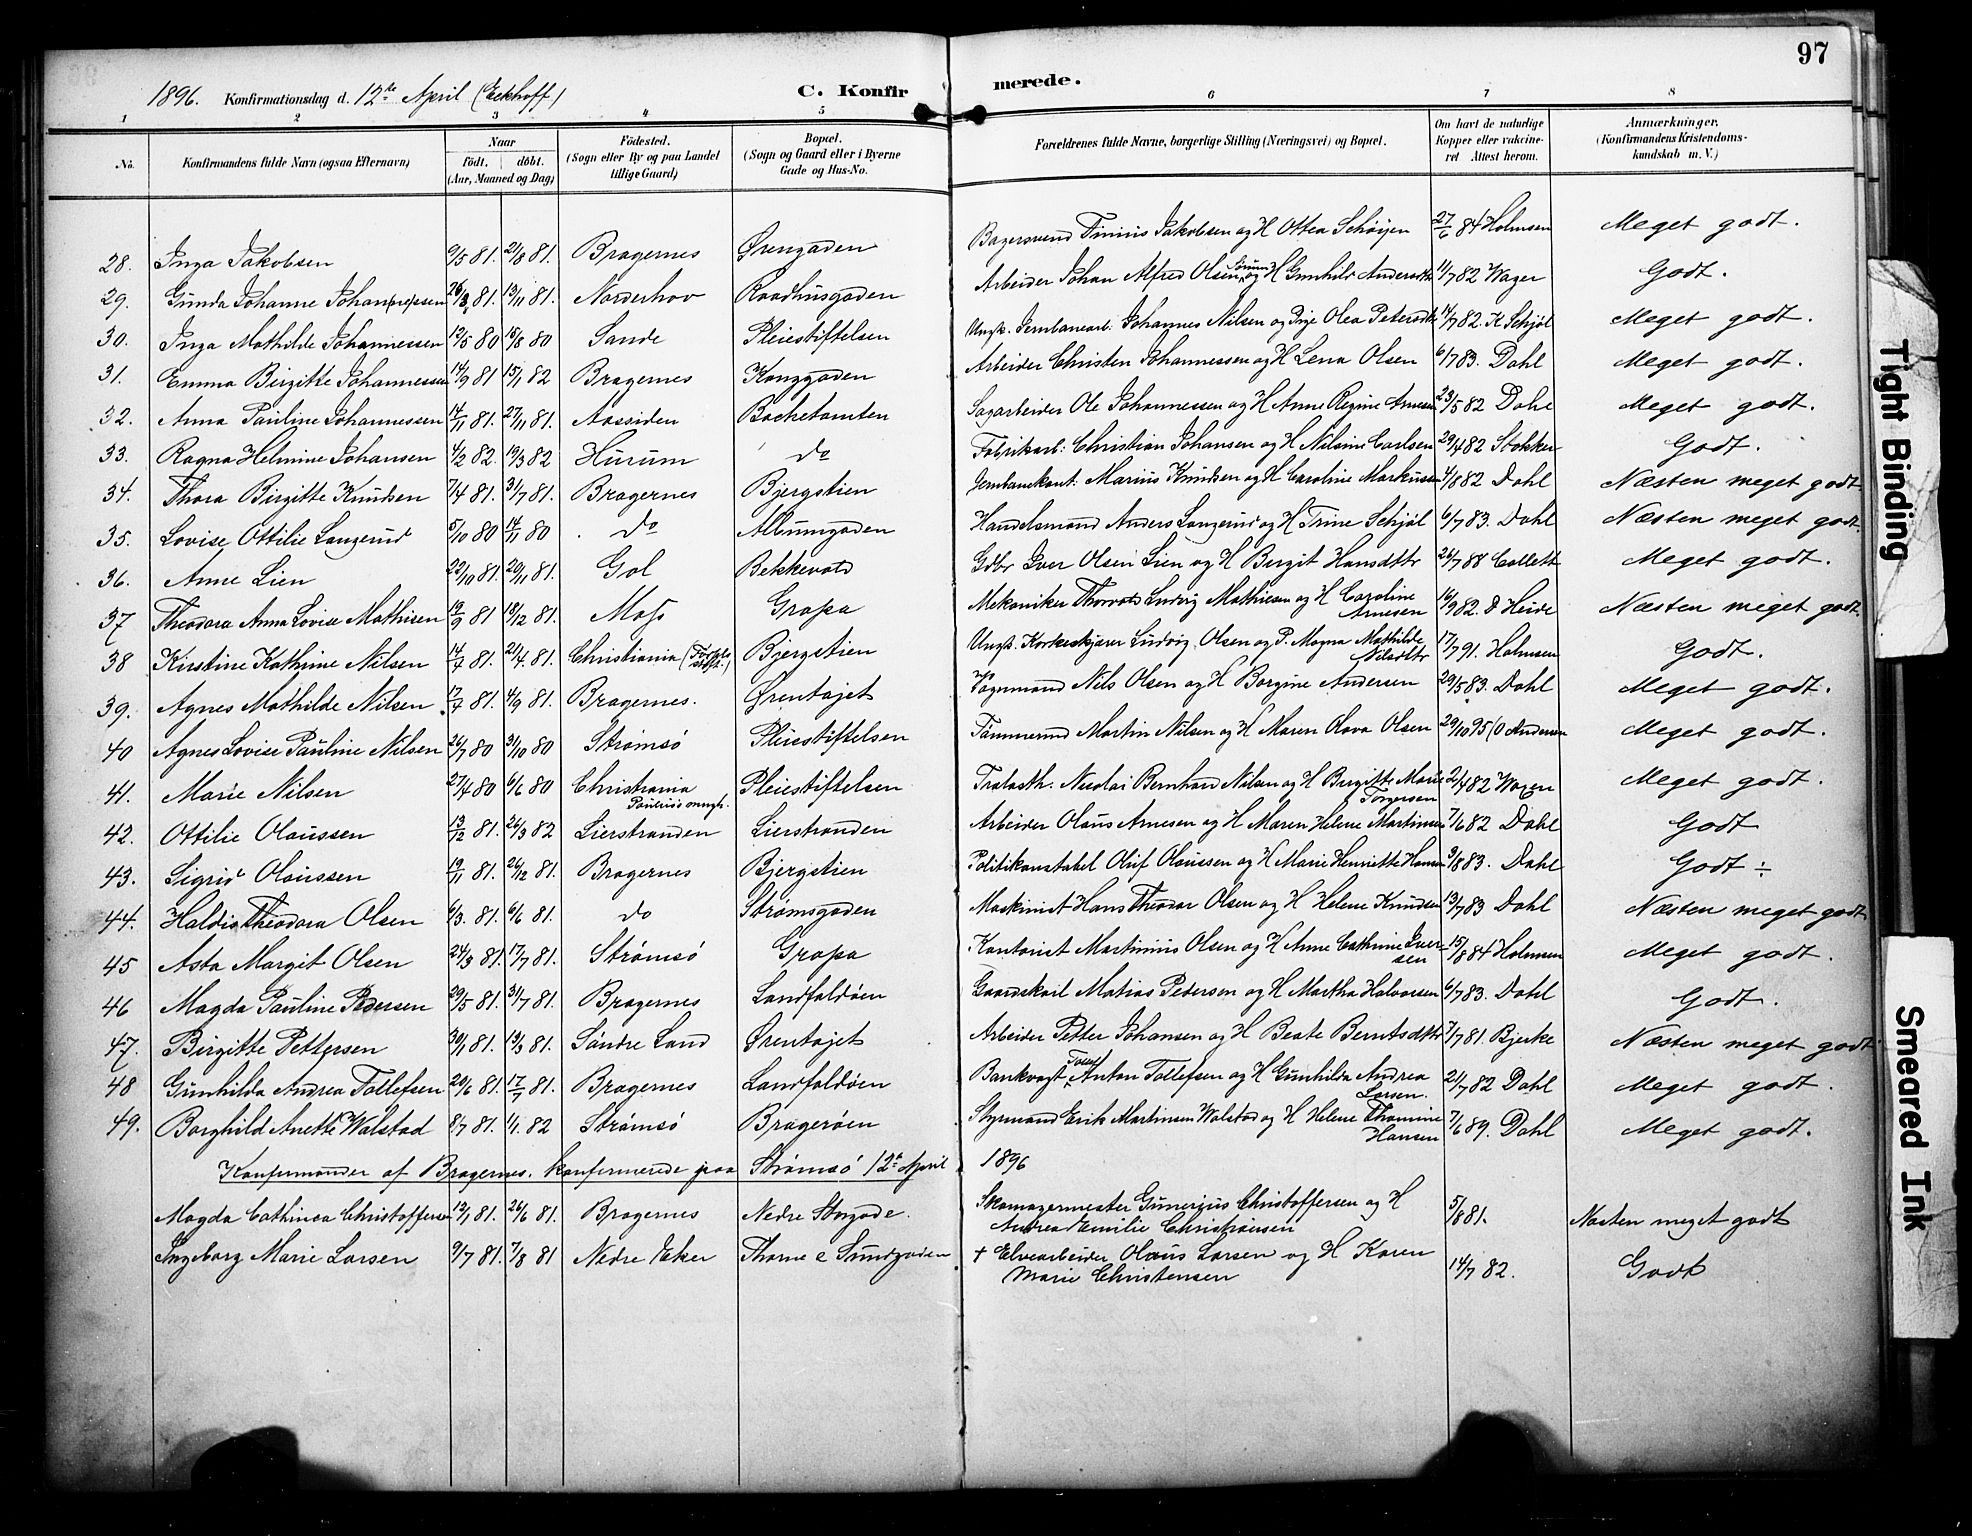 97
1896. Konfirmationsdag d. 12te April (Eckhoff) C. Konfirmerede.
1 2 3 4 5 6 7 8
No. Konfirmandens fulde Navn (ogsaa Efternavn) Naar født. døbt. (Aar, Maaned og Dag) Fødested. (Sogn eller By og paa Landet tillige Gaard) Bopæl. (Sogn og Gaard eller i Byerne Gade og Hus-No. Forældrenes fulde Navne, borgerlige Stilling (Næringsvei) og Bopæl. Om havt de naturlige Kopper eller vakcineret Attest herom. Anmærkninger. (Konfirmandens Kristendomskundskab m. V.)
28. Inga Jakobsen 9/5 81. 21/8 81. Bragernes Ørengaden Bagersvend Tinius Jakobsen og H Ottea Schøyen 27/6 84 Holmsen Meget godt.
29. Gunda Johanne Johan(ne)ssen 26/3 81. 13/11 81. Norderhov Raadhusgaden Arbeider Johan Alfred Olsen og H Gunhild Andersdtr 11/7 82 Wager Godt.
30. Inga Mathilde Johannessen 12/5 80 15/8 80 Sande Pleiestiftelsen Ungk. Jernbanearb. Johannes Nilsen og Pige Olea Petersdtr 14/7 82. K Schjøl Meget godt.
31. Emma Birgitte Johannessen 14/9 81 15/1 82 Bragernes Konggaden Arbeider Christen Johannessen og H Lena Olsen 6/7 83. Dahl Meget godt.
32. Anna Pauline Johannessen 14/11 81. 27/11 81. Aassiden Bachetomten Sagarbeider Ole Johannessen og H Anne Regine Arnesen 23/5 82 Dahl Meget godt.
33. Ragna Helmine Johansen 4/2 82. 19/3 82 Hurum do Fabrikarb: Christian Johansen og H Nilsine Carlsen 29/4 82 Stokker Godt.
34. Thora Birgitte Knudsen 7/4 81. 31/7 81. Bragernes Bjergstien Jernbanekont. Marius Knudsen og H Caroline Markussen 4/8 82 Dahl Næsten meget godt
35. Lovise Ottilie Langerud 5/10 80 14/11 80 do Albumgaden Handelsmand Anders Langerud og H Trine Schjøl 6/7 83. Dahl Næsten meget godt.
36. Anne Lien 22/10 81. 20/11 81. Gol Bekkevold Gdbr Iver Olsen Lien og H Birgit Hansdtr 26/7 88 Collett Meget godt.
37 Theodora Anna Lovise Mathisen 19/9 81 18/12 81. Moss Gropa Mekaniker Thorvald Ludvig Mathiesen og H Caroline Arnesen 16/9 82. D Heide Næsten meget godt.
38 Kirstine Kathrine Nilsen 14/7 81. 21/4 81. Christiania (Fødselsstift.) Bjergstien Ungk. Korkeskjærer Ludvig Olsen og P. Magna Mathilde Nilsdtr 17/7 91. Holmsen Godt.
39. Agnes Mathilde Nilsen 17/7 81. 4/9 81. Bragernes. Ørentøjet Vognmand Nils Olsen og H Borgine Andersen 29/5 83. Dahl Meget godt.
40 Agnes Lovise Pauline Nilsen 26/7 80 31/10 80 Strømsø Pleiestiftelsen Tømmermd Martin Nilsen og H Maren Olava Olsen 29/10 95 (O Andersen Meget godt.
41. Marie Nilsen 27/4 80 6/6 80 Christiania Paulus mngh. Pleiestiftelsen Trælasth. Nicolai Bernhard Nilsen og H Birgitte Marie Torgersen 2/4 82 Meget godt.
42. Ottilie Olaussen 13/12 81. 26/3 82 Lierstranden Lierstranden Arbeider Olaus Arnesen og H Maren Helene Martinsen 7/6 82 Dahl Godt
43. Sigrid Olaussen 19/11 81. 26/12 81. Bragernes Bjergstien Politikonstabel Oluf Olaussen og H Marie Henriette Hansen 3/8 83. Dahl Godt ÷
44. Haldis Theodora Olsen 6/3. 81. 6/6 81. do Strømsgaden Maskinist Hans Theodor Olsen og H Helene Knudsen 13/7 83 Dahl Næsten meget godt
45 Asta Margit Olsen 24/3 81. 17/7 81. Strømsø Gropa Kontorist Martinius Olsen og H Anne Cathrine Iversen 15/8 84 Holmsen Meget godt.
46 Magda Pauline Pedersen 29/5 81. 31/7 81. Bragernes Landfaldøen Gaardskarl Matias Pedersen og H Martha Halvorsen 6/7 83. Dahl Godt.
47. Birgitte Pettersen 30/1 81. 13/3 81. Søndre Land Ørentøjet Arbeider Petter Johansen og H Beate Berntsdtr 7/7 81. Bjerke Næsten meget godt
48 Gunhilda Andrea Tollefsen 20/6 81. 17/7 81. Bragernes Landfaldøen Bankvagt Anton Tollefsen og H Gunhilda Andrea Larsen. 21/7 82 Dahl Meget godt.
49. Borghild Anette Walstad 8/7 81. 1/1. 82 Strømsø Bragerøen Styrmand Erik Martinsen Walstad og H Helene Thomine Hansen 7/6 89. Dahl Meget godt.
Konfermander af Bragernes, konfermerede paa Strømsø 12te April 1896
Magda Cathinca Christoffersen 12/1 81. 26/6 81. Bragernes Nedre Storgade. Skomagermester Gunerius Christoffersen og H Andrea Emilie Christiansen 5/8 81. Næsten meget godt
Ingeborg Marie Larsen 9/7 81. 7/8 81 Nedre Eker Thorne e Sundgaden † Elvearbeider Olaus Larsen og H Karen Marie Christensen 14/7 82. Godt
Tight Binding
Smeared Ink